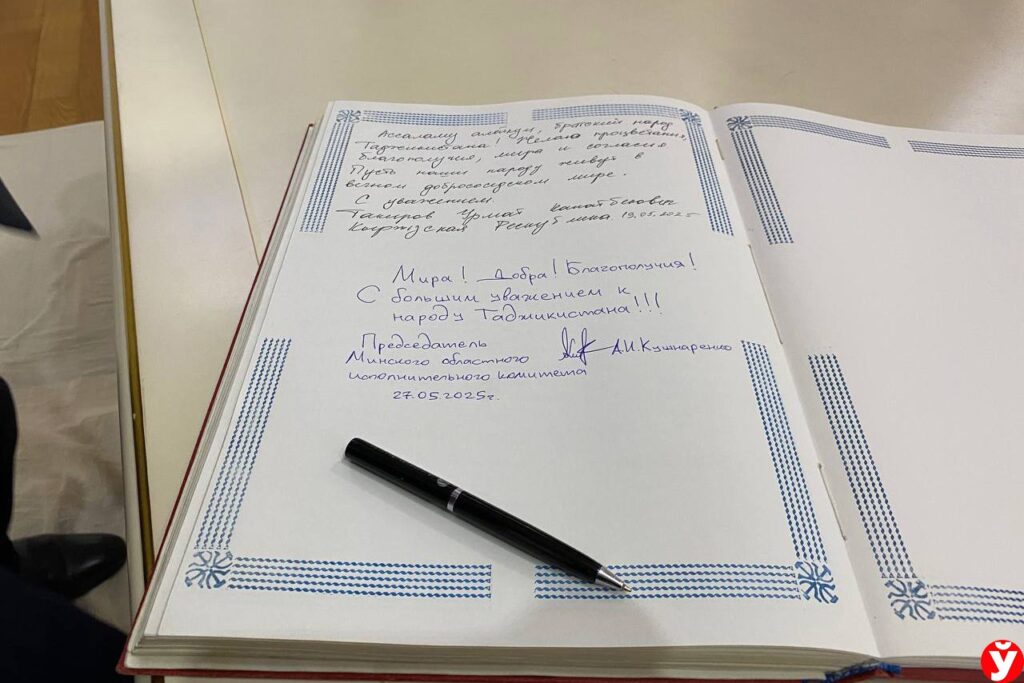 Ассаламу алейкум, братский народ
Таджикистана! Желаю процветания,
благополучия, мира и согласия
Пусть наши народы живут в
вечном добрососедском мире.
С уважением
Такиров Урмат Канатбекович
Кыргызская Республика 19.05.2025
Мира! Добра! Благополучия!
С большим уважением к
народу Таджикистана!!!
Председатель
Минского областного А.И.Кушнаренко
исполнительного комитета
27.05.2025г.
Ў